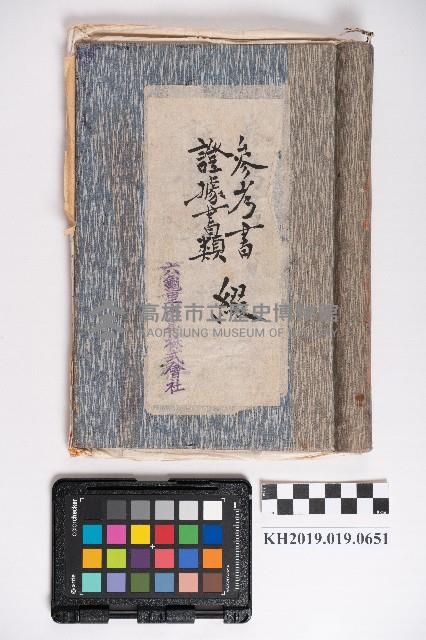 參考書
證據書類
綴
六龜里
株式會社
高雄市立歷史博物館
KAOHSIUNG MUSEUM OF HISTORY
KH2019.019.0651
colorchecker